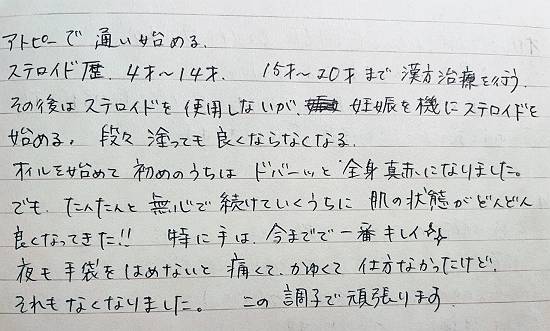 アトピーで通い始める。
ステロイド歴、4才～14才、 15才～20才まで漢方治療を行う。
その後はステロイドを使用しないが、妊娠を機にステロイドを
始める。段々塗っても良くならなくなる。
オイルを始めて初めのうちはドバーッと全身真赤になりました。
でも、たんたんと無心で続けていくうちに肌の状態がどんどん
良くなってきた!! 特に手は、今までで一番キレイ☆☆
夜も手袋をはめないと痛くて、かゆくて仕方なかったけど、
それもなくなりました。 この調子で頑張ります。